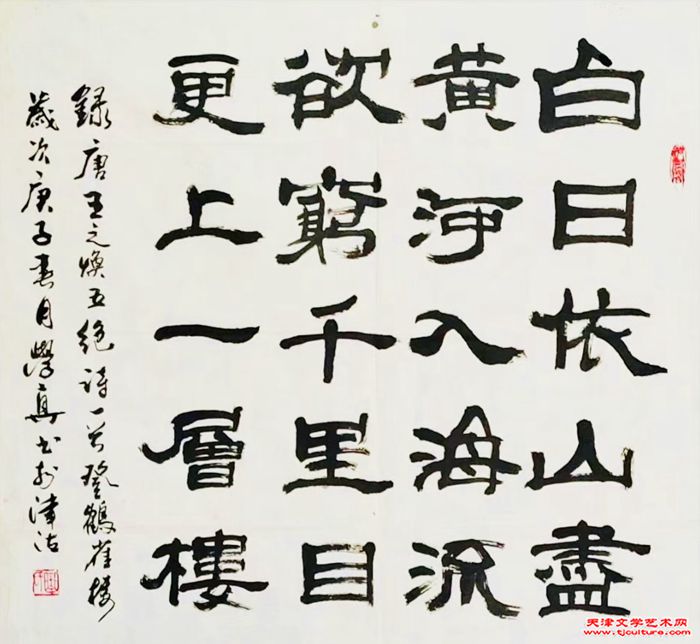 白日依山盡
黄河入海流
欲窮千里目
更上一層樓
録唐王之焕五绝诗一首登鹤雀楼
歲次庚子春月學真书於津沽
天津文学艺术网
www.tjculture.com